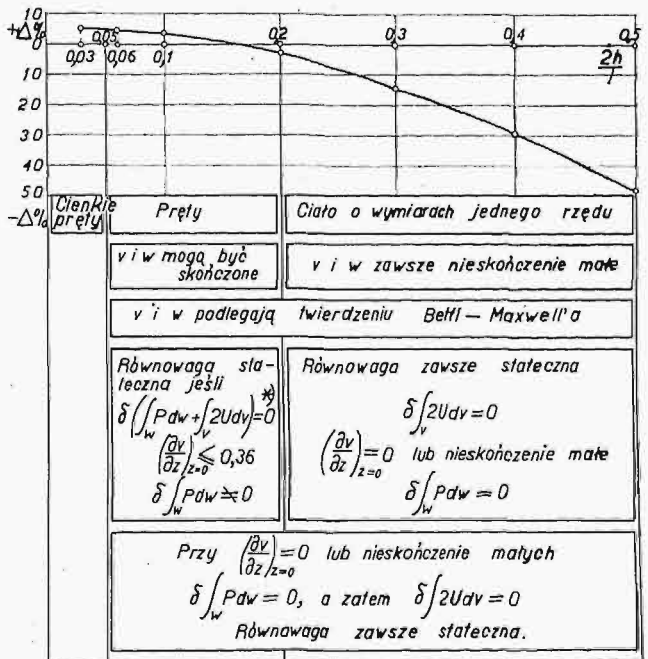 10
+Δ%
0
10
20
30
40
50
-Δ%
0,03 0,05 0,06 0,1 0,2 0,3 0,4 0,5
2h/l
Cienkie pręty
Pręty
Ciało o wymiarach jednego rzędu
v i w mogą być
skończone
v i w zawsze nieskończenie małe
v i w podlegają twierdzeniu Betti — Maxwell'a
Równowaga sta-
teczna jeśli
δ(∫_W Pdw + ∫_V 2Udv) = 0 *)
(∂v/∂z)_{z=0} ⩽ 0,36
δ∫_W Pdw ≒ 0
Równowaga zawsze stateczna
δ∫_V 2Udv = 0
(∂v/∂z)_{z=0} = 0 lub nieskończenie małe
δ∫_W Pdw = 0
Przy (∂v/∂z)_{z=0} = 0 lub nieskończenie małych
δ∫_W Pdw = 0, a zatem δ∫2Udv = 0
Równawaga zawsze stateczna.